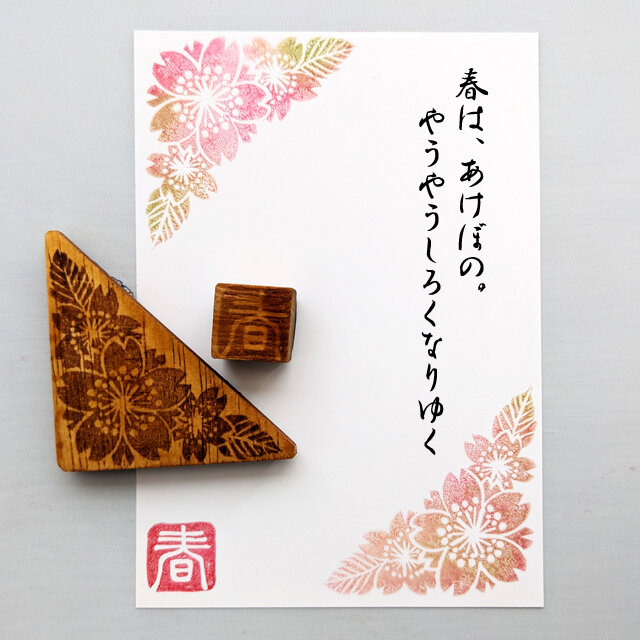 春は、あけぼの。
やうやうしろくなりゆく
春
春